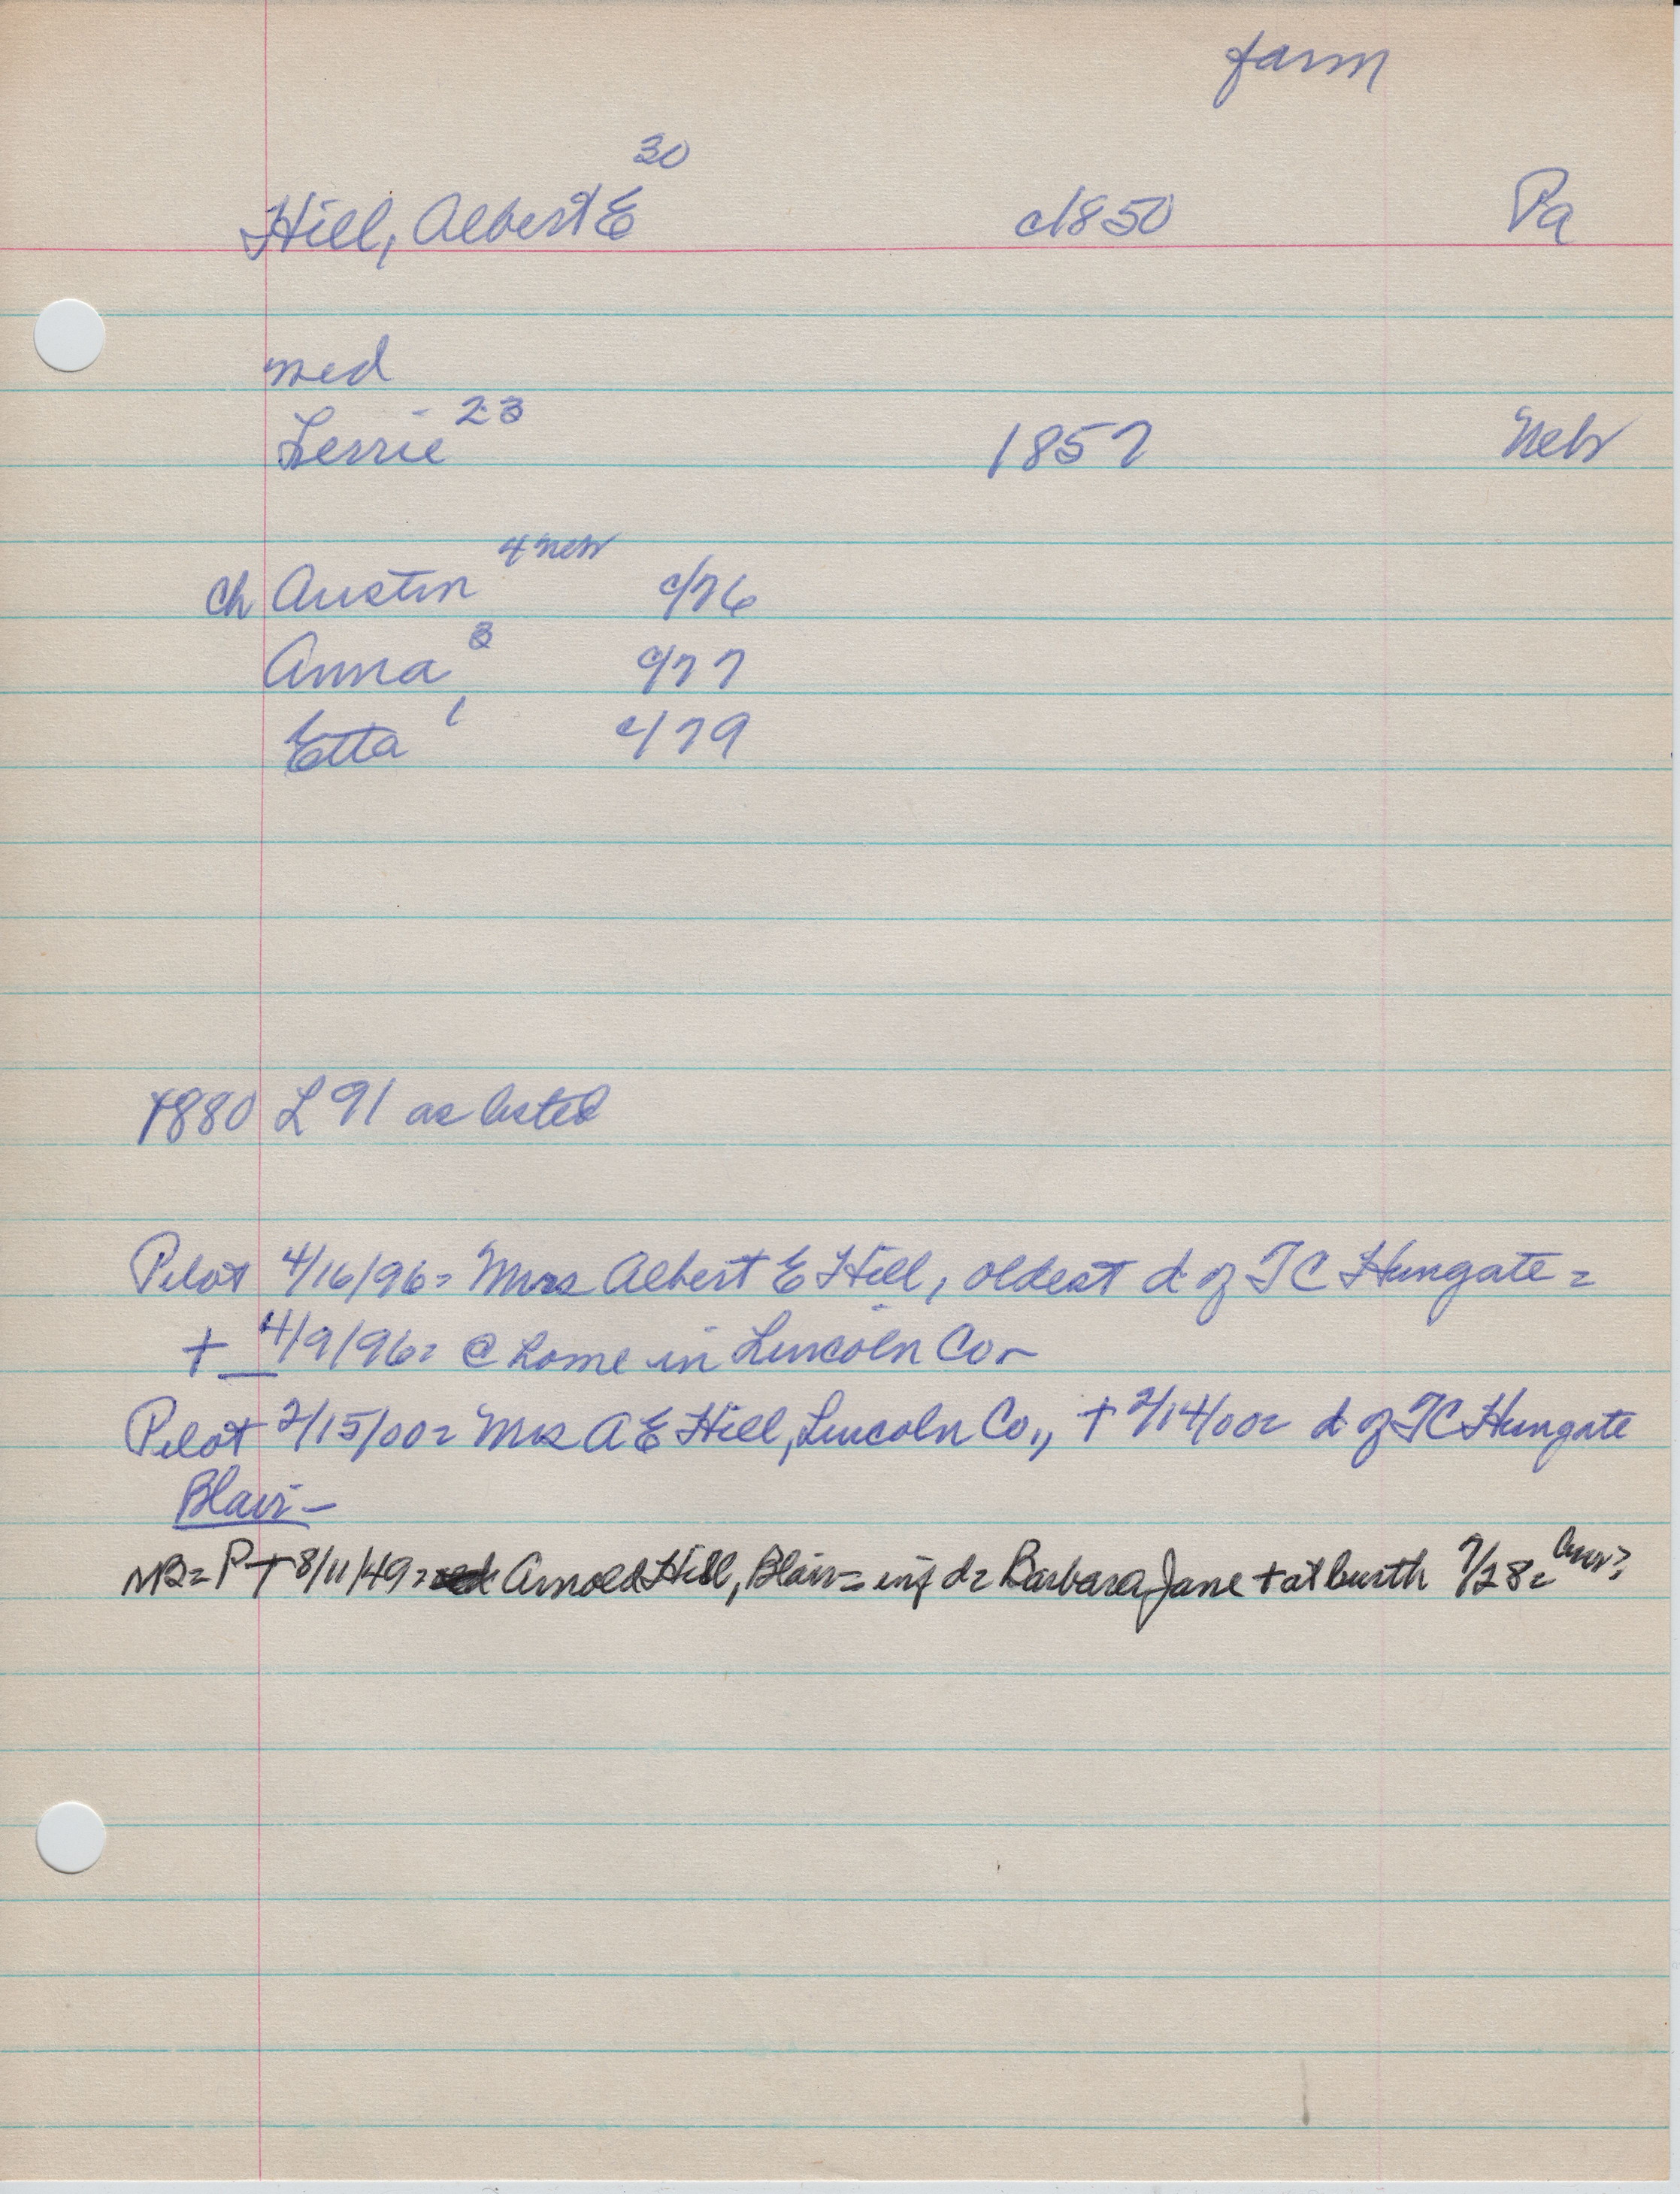 farm
30
Hill, Albert E c1850 Pa
med
Lerrie 23 1857 Nebr
ch Austin 4 nebr c/76
Anna 3 c/77
Etta 1 c/79
1880 L 91 as listed
Pilot 4/16/96= Mrs Albert E Hill, oldest d of TC Hungate =
+ 4/9/96= @ home in Lincoln Co-
Pilot 2/15/00= Mrs A E Hill, Lincoln Co., + 2/14/00= d of TC Hungate
Blair-
NB= P + 8/11/49= Arnold Hill, Blair= inf d= Barbara Jane + at burth 7/28=